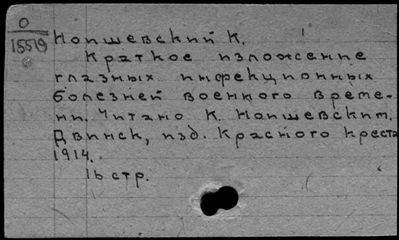 О
15519
Нопшевский К.
Краткое изложение
глазных инфекционных
болезней военного време-
ни. Читано К. Нопшевским.
Двинск, изд. Красного креста
1914.
16 стр.